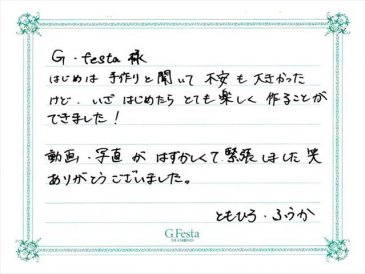 G.festa 様
はじめは 手作りと聞いて 不安も大きかった
けど、いざはじめたら とても楽しく 作ることが
できました！
動画・写真が はずかしくて緊張しました笑
ありがとうございました。
ともひろ・ふうか
G.Festa